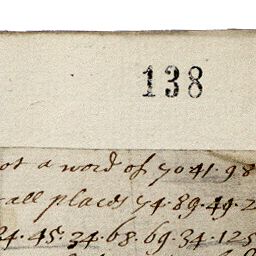 138
ot a word of 7041.98
all places 74.89.49.2
34.45.34.68.69.34.125